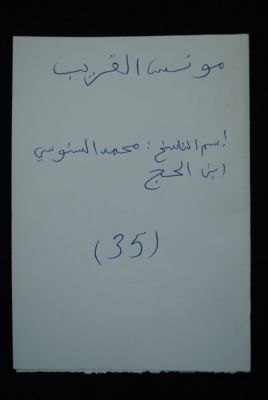 مونس القريب
إسم الناسخ : محمد السنوسي
ابن الحج
(35)